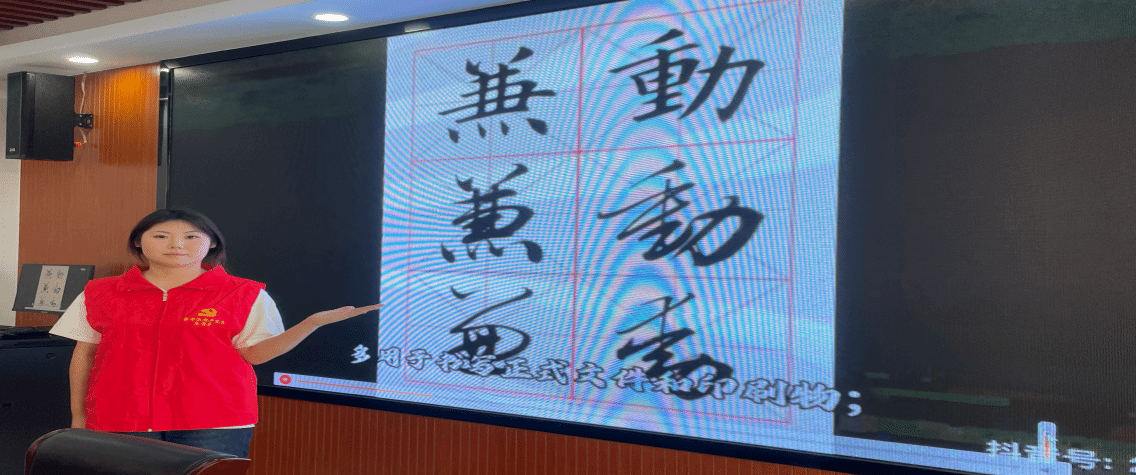 兼 動
兼 動
兼 動
多用于书写正式文件和印刷物；
抖音号：